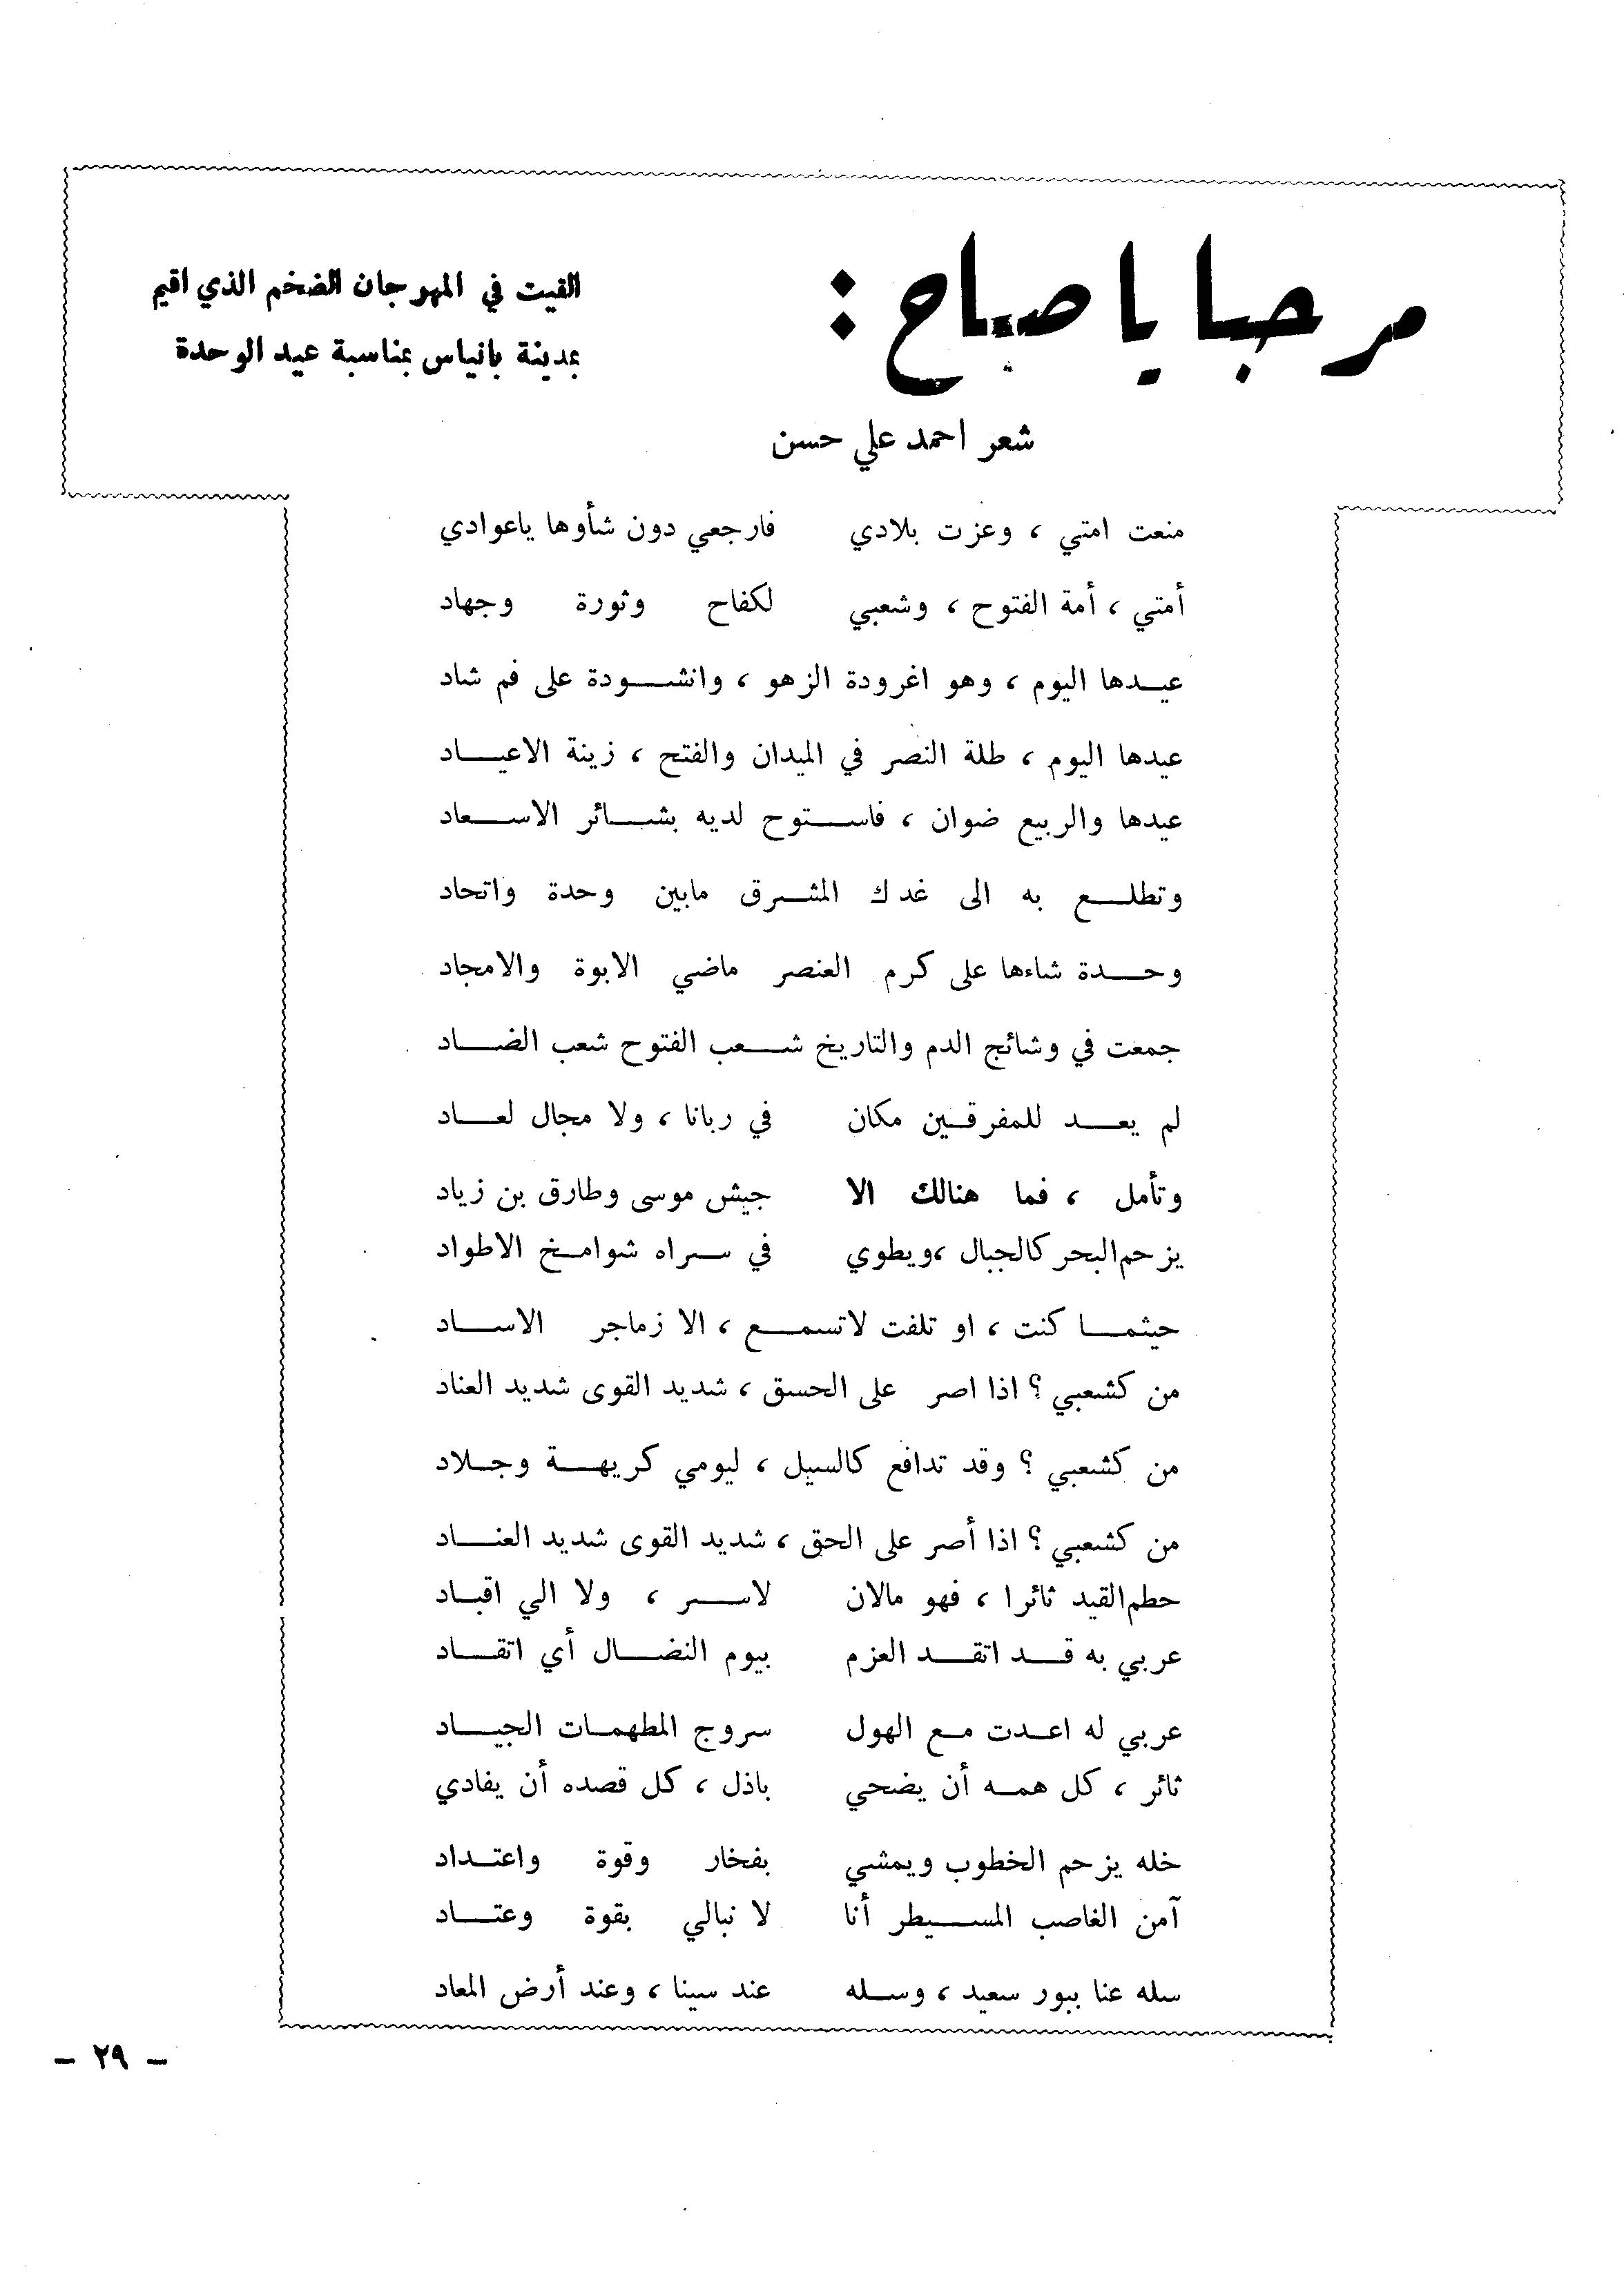 مرحبا يا صباح :
القيت في المهرجان الضخم الذي اقيم
بمدينة بانياس بمناسبة عيد الوحدة
شعر احمد علي حسن
منعت امتي ، وعزت بلادي فارجعي دون شأوها ياعوادي
أمتي ، أمة الفتوح ، وشعبي لكفاح وثورة وجهاد
عيدها اليوم ، وهو اغرودة الزهو ، وانشودة على فم شاد
عيدها اليوم ، طلة النصر في الميدان والفتح ، زينة الاعياد
عيدها والربيع ضوان ، فاستوح لديه بشائر الاسعاد
وتطلع به الى غدك المشرق مابين وحدة واتحاد
وحدة شاءها على كرم العنصر ماضي الابوة والامجاد
جمعت في وشائج الدم والتاريخ شعب الفتوح شعب الضاد
لم يعد للمفرقين مكان في ربانا ، ولا مجال لعاد
وتأمل ، فما هنالك الا جيش موسى وطارق بن زياد
يزحم البحر كالجبال ،ويطوي في سراه شوامخ الاطواد
حيثما كنت ، او تلفت لاتسمع ، الا زماجر الاساد
من كشعبي ؟ اذا اصر على الحسق ، شديد القوى شديد العناد
من كشعبي ؟ وقد تدافع كالسيل ، ليومي كريهة وجلاد
من كشعبي ؟ اذا أصر على الحق ، شديد القوى شديد العناد
حطم القيد ثائرا ، فهو مالان لاسر ، ولا الي اقباد
عربي به قد اتقد العزم بيوم النضال أي اتقاد
عربي له اعدت مع الهول سروج المطهمات الجياد
ثائر ، كل همه أن يضحي باذل ، كل قصده أن يفادي
خله يزحم الخطوب ويمشي بفخار وقوة واعتداد
آمن الغاصب المسيطر أنا لا نبالي بقوة وعتاد
سله عنا ببور سعيد ، وسله عند سينا ، وعند أرض المعاد
- ٢٩ -